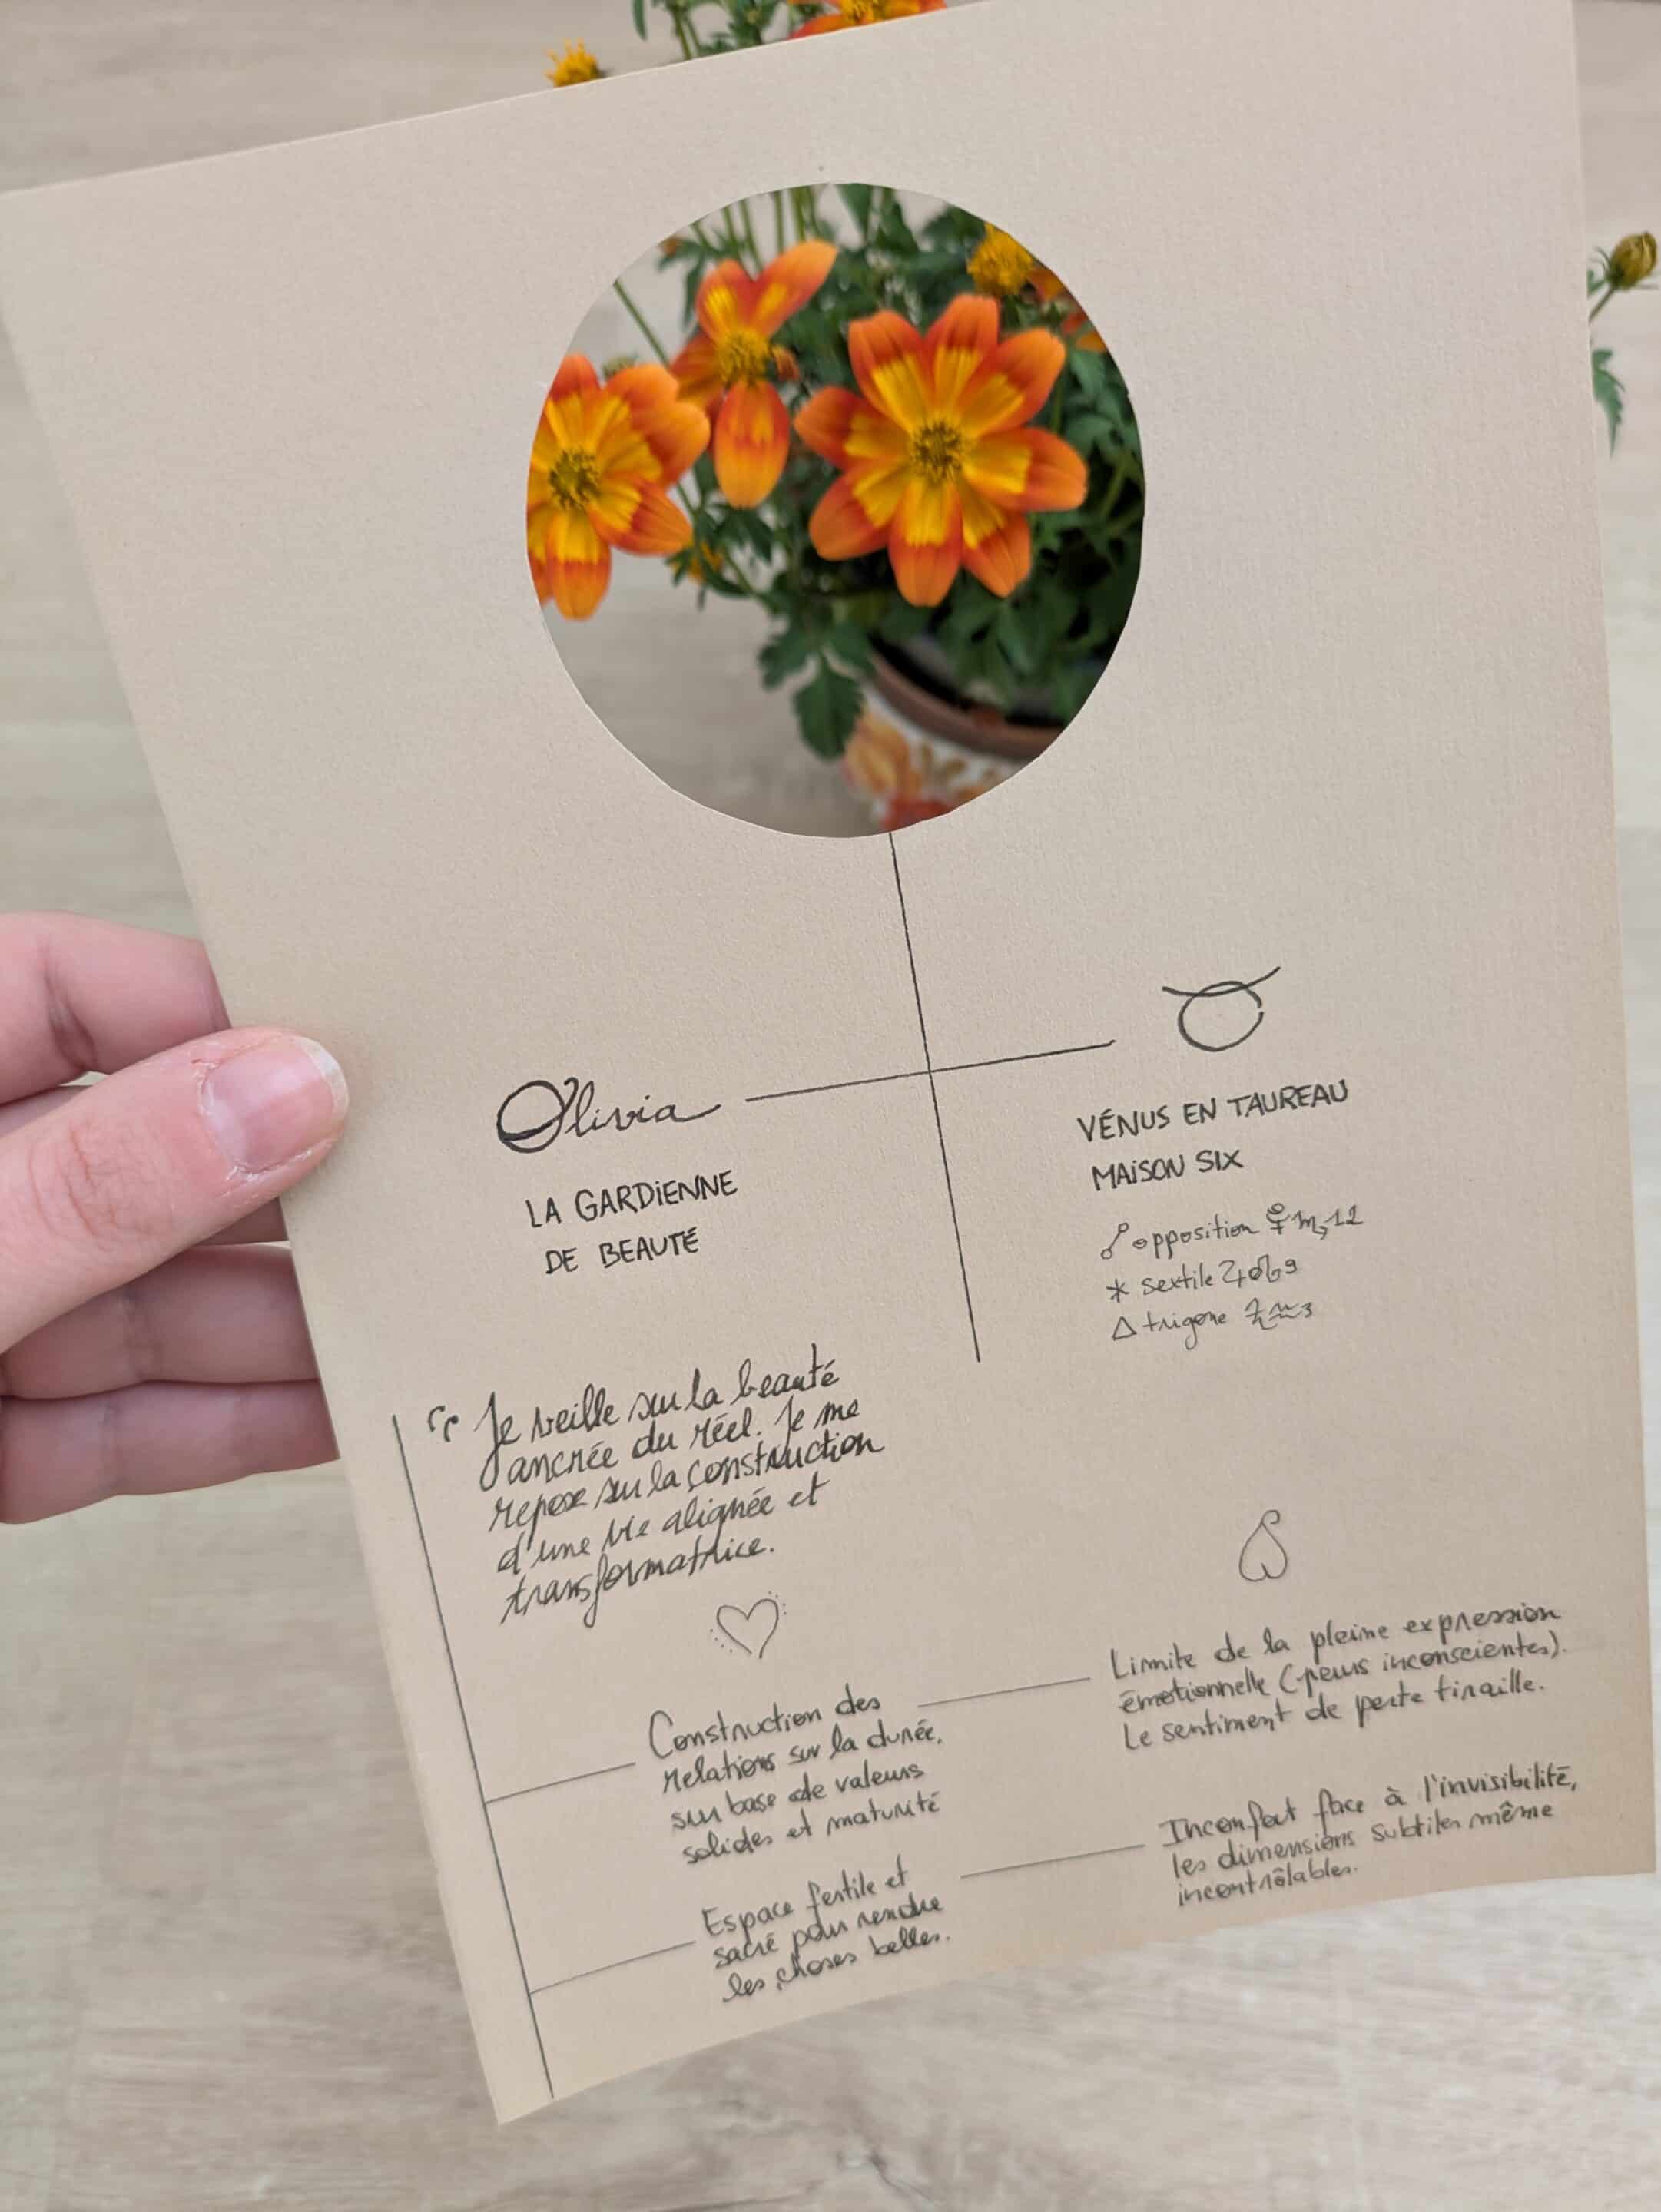 Olivia
LA GARDIENNE
DE BEAUTÉ
♉
VÉNUS EN TAUREAU
MAISON SIX
☍ opposition ♀ ♏ 12
⚹ sextile ♃ ♋ 9
△ trigone ♒ 3
“ Je veille sur la beauté
ancrée du réel. Je me
repose sur la construction
d'une vie alignée et
transformatrice.
Construction des
relations sur la durée,
sur base de valeurs
solides et maturité
Espace fertile et
sacré pour rendre
les choses belles.
Limite de la pleine expression
émotionnelle (peurs inconscientes).
Le sentiment de perte tiraille.
Inconfort face à l'invisibilité,
les dimensions subtiles même
incontrôlables.